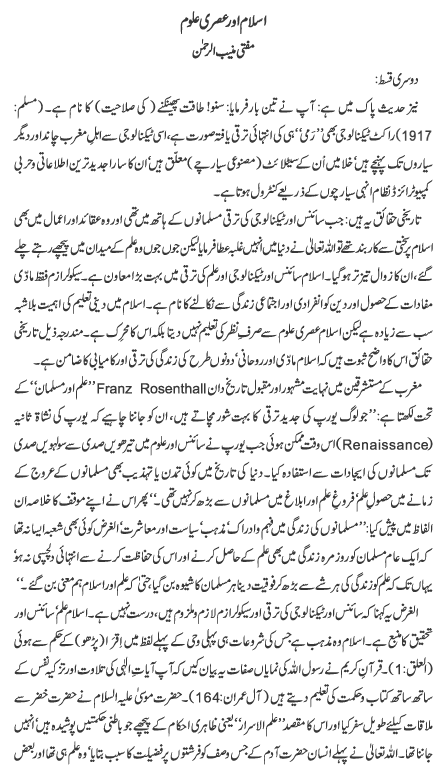 اسلام اور عصری علوم
مفتی منیب الرحمٰن
دوسری قسط:
نیز حدیث پاک میں ہے: آپ نے تین بار فرمایا: سنو! طاقت پھینکنے (کی صلاحیت) کا نام ہے۔ (مسلم:
1917) راکٹ ٹیکنالوجی بھی ’’رَمی‘‘ ہی کی انتہائی ترقی یافتہ صورت ہے، اسی ٹیکنالوجی سے اہلِ مغرب چاند اور دیگر
سیاروں تک پہنچے ہیں‘ خلا میں اُن کے سیٹلائٹ (مصنوعی سیارچے) معلّق ہیں‘ اُن کا سارا جدید ترین اطلاعاتی وحربی
کمپیوٹرائزڈ نظام انہی سیارچوں کے ذریعے کنٹرول ہوتا ہے۔
تاریخی حقائق یہ ہیں: جب سائنس اور ٹیکنالوجی کی ترقی مسلمانوں کے ہاتھ میں تھی اور وہ عقائد اور اعمال میں بھی
اسلام پر سختی سے کاربند تھے تو اللہ تعالیٰ نے دنیا میں انہیں غلبہ عطا فرمایا لیکن جوں جوں وہ علم کے میدان میں پیچھے رہتے چلے
گئے، ان کا زوال تیز تر ہو گیا۔ اسلام سائنس اور ٹیکنالوجی اور علم کی ترقی میں بہت بڑا معاون ہے۔ سیکولرازم فقط مادّی
مفادات کے حصول اور دین کو انفرادی اور اجتماعی زندگی سے نکالنے کا نام ہے۔ اسلام میں دینی تعلیم کی اہمیت بلاشبہ
سب سے زیادہ ہے لیکن اسلام عصری علوم سے صرفِ نظر کی تعلیم نہیں دیتا بلکہ اس کا محرِّک ہے۔ مندرجہ ذیل تاریخی
حقائق اس کا واضح ثبوت ہیں کہ اسلام مادّی اور روحانی‘ دونوں طرح کی زندگی کی ترقی اور کامیابی کا ضامن ہے۔
مغرب کے مستشرقین میں نہایت مشہور اور مقبول تاریخ دان Franz Rosenthall ’’علم اور مسلمان‘‘ کے
تحت لکھتا ہے: ’’جو لوگ یورپ کی جدید ترقی کا بہت شور مچاتے ہیں، ان کو جاننا چاہیے کہ یورپ کی نشاۃ ثانیہ
(Renaissance) اس وقت ممکن ہوئی جب یورپ نے سائنس اور علوم میں تیرھویں صدی سے سولہویں صدی
تک مسلمانوں کی ایجادات سے استفادہ کیا۔ دنیا کی تاریخ میں کوئی تمدن یا تہذیب بھی مسلمانوں کے عروج کے
زمانے میں حصولِ علم‘ فروغِ علم اور ابلاغ میں مسلمانوں سے بڑھ کر نہیں تھی۔‘‘ پھر اس نے اپنے موقف کا خلاصہ ان
الفاظ میں پیش کیا: ’’مسلمانوں کی زندگی میں فہم وادراک‘ مذہب‘ سیاست اور معاشرت‘ الغرض کوئی بھی شعبہ ایسا نہ تھا
کہ ایک عام مسلمان کو روزمرہ زندگی میں بھی علم کے حاصل کرنے اور اس کی حفاظت سے انتہائی دلچسپی نہ ہو‘
یہاں تک کہ علم کو زندگی کی ہر شے سے بڑھ کر فوقیت دینا ہر مسلمان کا شیوہ بن گیا حتیٰ کہ علم اور اسلام ہم معنی بن گئے۔‘‘
الغرض یہ کہنا کہ سائنس اور ٹیکنالوجی کی ترقی اور سیکولرازم لازم وملزوم ہیں، درست نہیں ہے۔ اسلام علم‘ سائنس اور
تحقیق کا منبع ہے۔ اسلام وہ مذہب ہے جس کی شروعات ہی پہلی وحی کے پہلے لفظ میں اِقرَا (پڑھو) کے حکم سے ہوئی
(العلق:1)۔ قرآنِ کریم نے رسول اللہ کی نمایاں صفات یہ بیان کیں کہ آپ آیاتِ الٰہی کی تلاوت اور تزکیہ نفس کے
ساتھ ساتھ کتاب وحکمت کی تعلیم دیتے ہیں (آل عمران:164)۔ حضرت موسیٰ علیہ السلام نے حضرت خضر سے
ملاقات کیلئے طویل سفر کیا اور اس کا مقصد ’’علم الاسرار‘‘ یعنی ظاہری احکام کے پیچھے جو باطنی حکمتیں پوشیدہ ہیں‘ اُنہیں
جاننا تھا۔ اللہ تعالیٰ نے پہلے انسان حضرت آدم کے جس وصف کو فرشتوں پر فضیلت کا سبب بتایا‘ وہ علم ہی تھا اور بعض